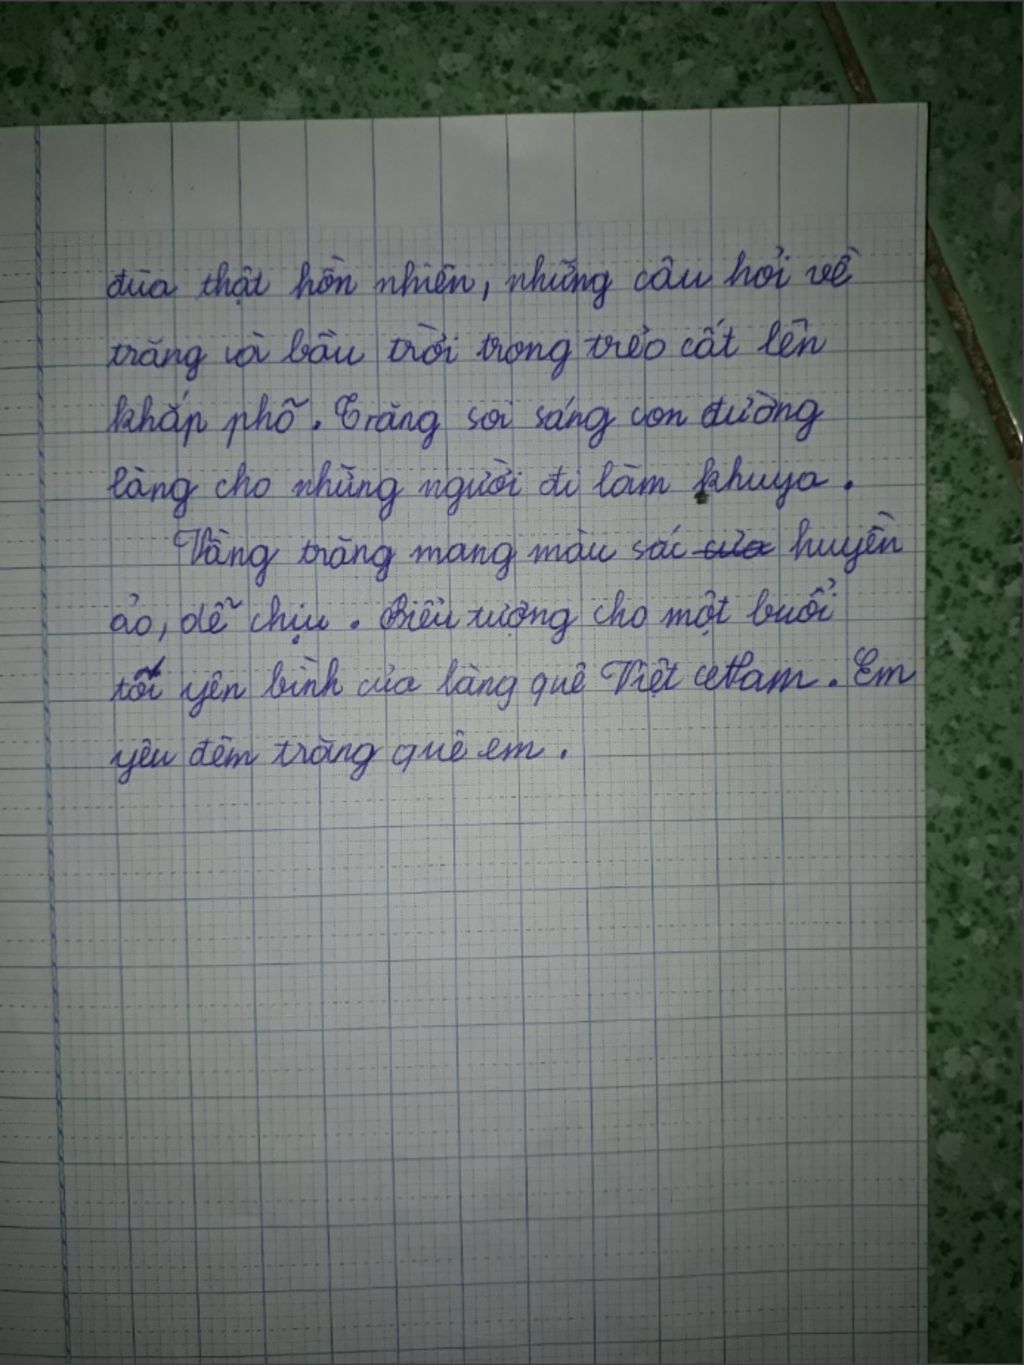 đùa thật hồn nhiên, những câu hỏi về
trăng và bầu trời trong trẻo cất lên
khắp phố. Trăng soi sáng con đường
làng cho những người đi làm khuya.
Vầng trăng mang màu sắc của huyền
ảo, dễ chịu. Biểu tượng cho một buổi
tối yên bình của làng quê Việt Nam. Em
yêu đêm trăng quê em.